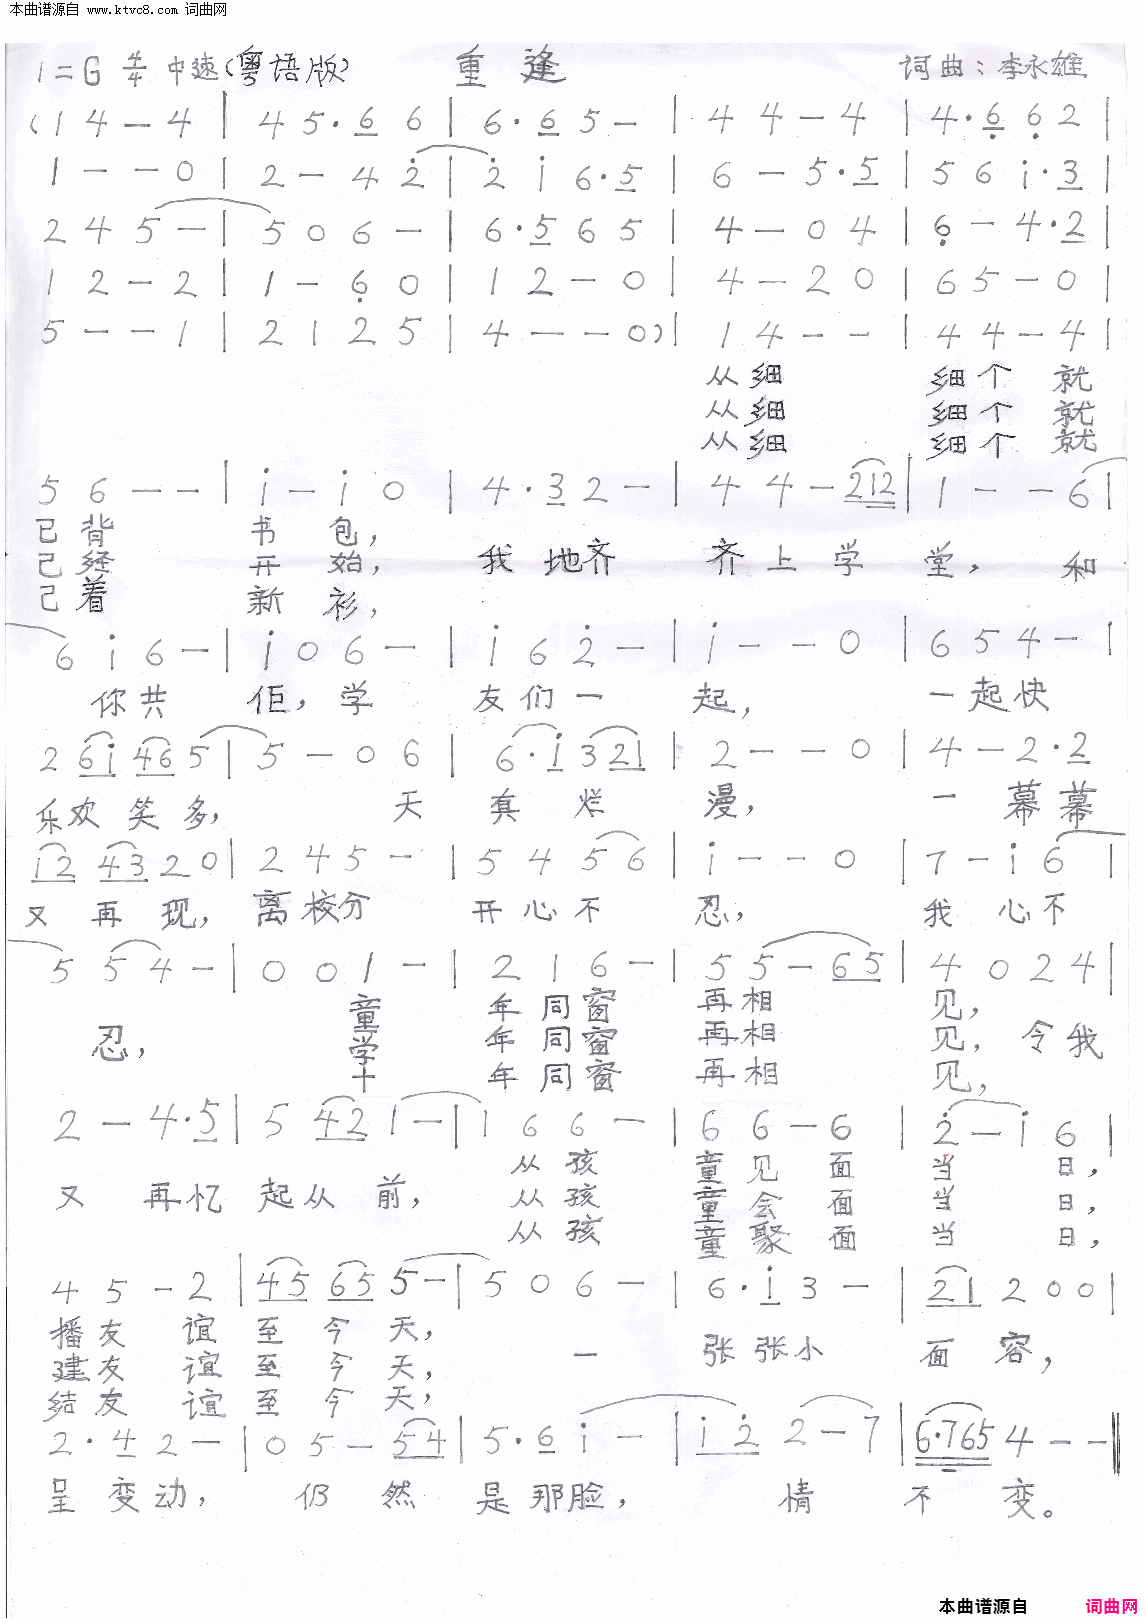 本曲谱源自 www.ktvc8.com 词曲网
1=G 4/4 中速(粤语版) 重逢 词曲:李永雄
(1 4 — 4 | 4 5· 6 6 | 6· 6 5 — | 4 4 — 4 | 4· 6 6 2 |
1 — — 0 | 2 — 4 2 | 2 i 6· 5 | 6 — 5· 5 | 5 6 i· 3 |
2 4 5 — | 5 0 6 — | 6· 5 6 5 | 4 — 0 4 | 6 — 4· 2 |
1 2 — 2 | 1 — 6 0 | 1 2 — 0 | 4 — 2 0 | 6 5 — 0 |
5 — — 1 | 2 1 2 5 | 4 — — 0) | 1 4 — — | 4 4 — 4 |
从细 细个 就
从细 细个 就
从细 细个 就
5 6 — — | i — i 0 | 4· 3 2 — | 4 4 — 212 | 1 — — 6 |
已背 书 包,
已经 开 始, 我 地齐 齐上学 堂, 和
已着 新 衫,
6 i 6 — | i 0 6 — | i 6 2 — | i — — 0 | 6 5 4 — |
你共 佢,学 友们一 起, 一起快
2 6i 46 5 | 5 — 0 6 | 6· i 3 21 | 2 — — 0 | 4 — 2· 2 |
乐欢 笑 多, 天 真 烂 漫, 一 幕幕
i2 43 2 0 | 2 4 5 — | 5 4 5 6 | i — — 0 | 7 — i 6 |
又 再 现,离校分 开心不 忍, 我 心不
5 5 4 — | 0 0 1 — | 2 1 6 — | 5 5 — 65 | 4 0 2 4 |
童 年同窗 再相 见,
忍, 学 年同窗 再相 见, 令我
十 年同窗 再相 见,
2 — 4· 5 | 5 42 1 — | 1 6 6 — | 6 6 — 6 | 2 — i 6 |
从孩 童见面 当 日,
又 再忆 起从 前, 从孩 童会面 当 日,
从孩 童聚面 当 日,
4 5 — 2 | 45 65 5 — | 5 0 6 — | 6· i 3 — | 21 2 0 0 |
播友 谊 至 今 天,
建友 谊 至 今 天, 一 张张小 面 容,
结友 谊 至 今 天,
2· 4 2 — | 0 5 — 54 | 5· 6 i — | i 2 2 — 7 | 6·765 4 — — ‖
呈 变动, 仍 然 是那脸, 情 不 变。
本曲谱源自 词曲网